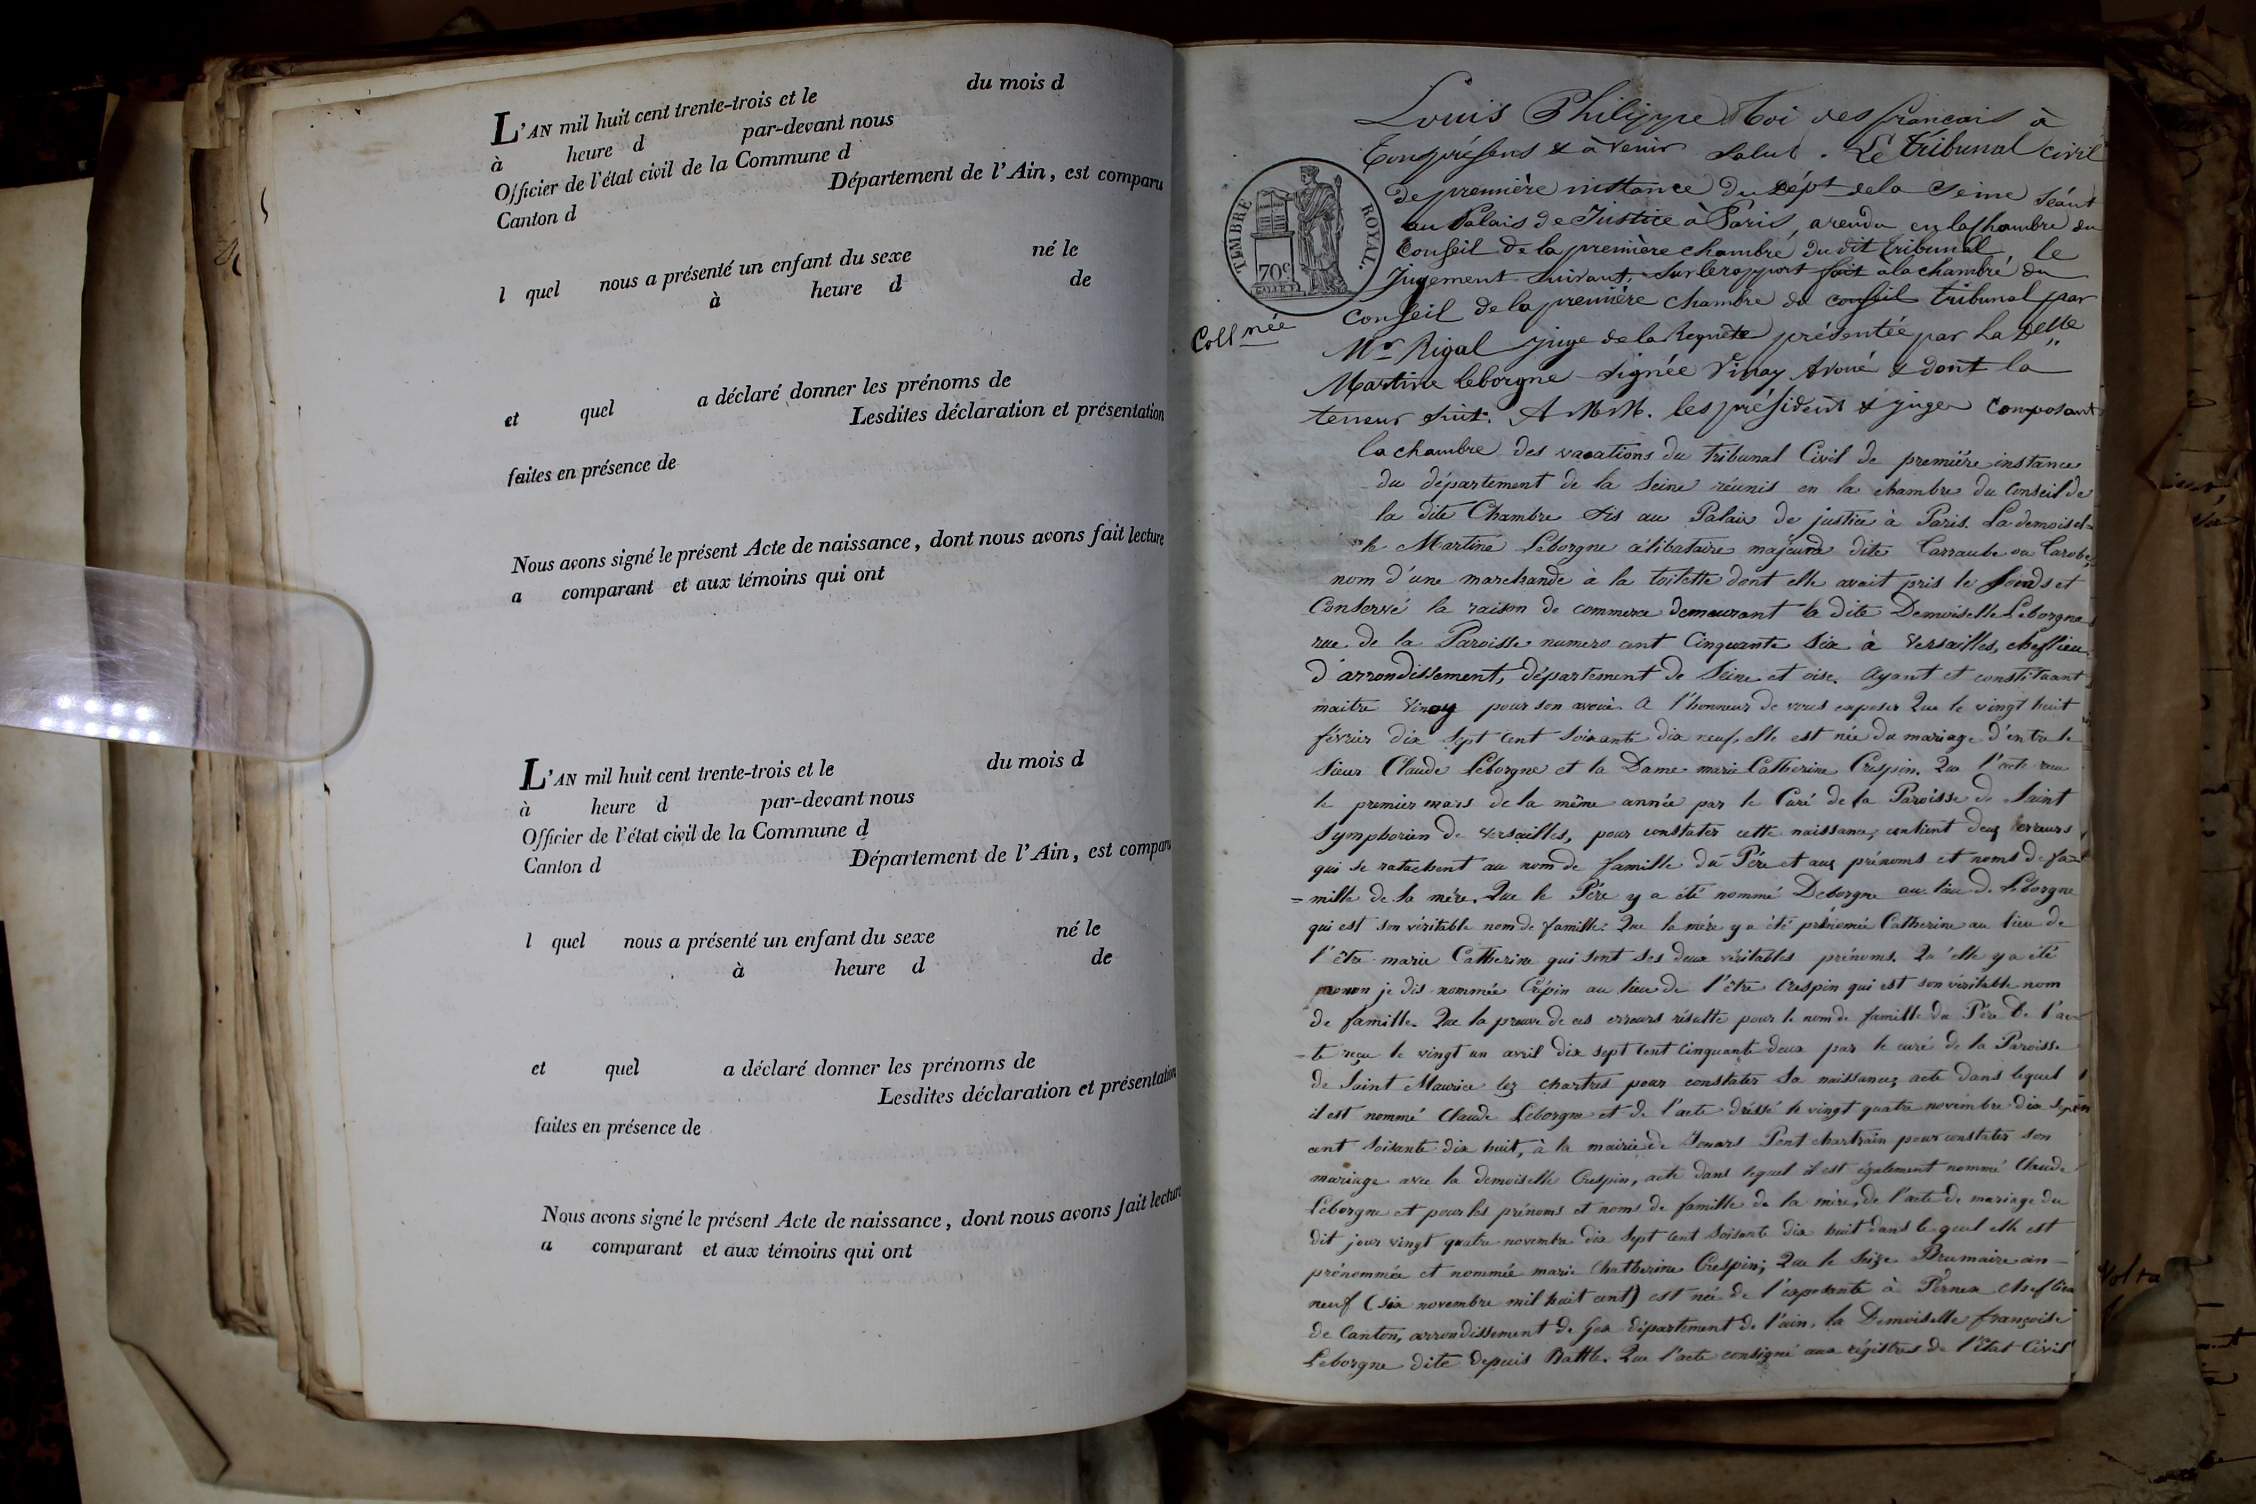 L'AN mil huit cent trente-trois et le du mois d
à heure d par-devant nous
Officier de l'état civil de la Commune d
Canton d Département de l'Ain, est comparu
l quel nous a présenté un enfant du sexe né le
à heure d de
et quel a déclaré donner les prénoms de
Lesdites déclaration et présentation
faites en présence de
Nous avons signé le présent Acte de naissance, dont nous avons fait lecture
a comparant et aux témoins qui ont
L'AN mil huit cent trente-trois et le du mois d
à heure d par-devant nous
Officier de l'état civil de la Commune d
Canton d Département de l'Ain, est comparu
l quel nous a présenté un enfant du sexe né le
à heure d de
et quel a déclaré donner les prénoms de
Lesdites déclaration et présentation
faites en présence de
Nous avons signé le présent Acte de naissance, dont nous avons fait lecture
a comparant et aux témoins qui ont
TIMBRE ROYAL.
70c
Coll née
Louis Philippe Roi des français à
Tous présens & à venir salut. Le tribunal civil
de première instance du dépt de la Seine séant
au Palais de Justice à Paris, a rendu en la chambre du
Conseil de la première chambre du dit tribunal le
Jugement suivant, sur le rapport fait à la chambre du
Conseil de la première chambre du conseil tribunal par
Mr Rigal juge de la Requête présentée par la Delle
Martine Leborgne signée Vinay Avoué & dont la
teneur suit. A M.M. les président & juges composant
la chambre des vacations du tribunal Civil de première instance
du département de la Seine réunis en la chambre du Conseil de
la dite Chambre sis au Palais de justice à Paris. La demoisel-
le Martine Leborgne célibataire majeure dite Carraube ou Carobe,
nom d'une marchande à la toilette dont elle avait pris le fonds et
Conservé la raison de commerce demeurant la dite Demoiselle Leborgne
rue de la Paroisse numero cent Cinquante Six à Versailles, chef lieu
d'arrondissement, département de Seine et oise. Ayant et constituant
maitre Vinay pour son avoué. A l'honneur de vous exposer Que le vingt huit
février dix sept cent soixante dix neuf, elle est née du mariage d'entre le
Sieur Claude Leborgne et la Dame marie Catherine Crespin. Que l'acte reçu
le premier mars de la même année par le Curé de la Paroisse de Saint
Symphorien de Versailles, pour constater cette naissance, contient deux erreurs
qui se ratachent au nom de famille du Père et aux prénoms et noms de fa-
=mille de la mère. Que le Père y a été nommé Deborgne au lieu de Leborgne
qui est son véritable nom de famille. Que la mère y a été prénomée Catherine au lieu de
l'être marie Catherine qui sont ses deux véritables prénoms. Qu'elle y a été
prenom je dis nommée Crépin au lieu de l'être Crespin qui est son véritable nom
de famille. Que la preuve de ces erreurs résulte pour le nom de famille du Père De l'ac-
-te reçu le vingt un avril dix sept cent cinquante deux par le curé de la Paroisse
de Saint Maurice lez chartres pour constater sa naissance, acte dans lequel
il est nommé Claude Leborgne et de l'acte dréssé le vingt quatre novembre dix sept
cent soixante dix huit, à la mairie de Jouars Pont chartrain pour constater son
mariage avec la demoiselle Crespin, acte dans lequel il est également nommé Claude
Leborgne et pour les prénoms et noms de famille de la mère, de l'acte de mariage du
dit jour vingt quatre novembre dix sept cent soixante dix huit dans lequel elle est
prénommée et nommée marie Chatherine Crespin; Que le seize Brumaire an
neuf (six novembre mil huit cent) est née de l'exposante à Fernex chef lieu
de Canton, arrondissement de Gex département de l'ain, la Demoiselle françoise
Leborgne dite depuis Battle. Que l'acte consigné aux régistres de l'État Civil